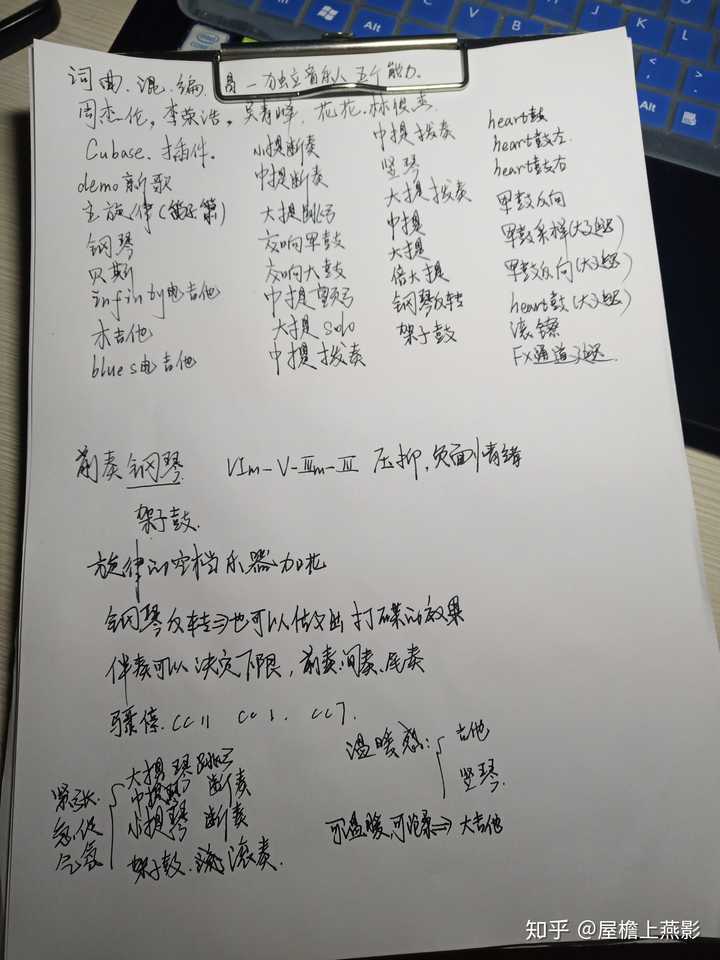 词曲、混、编、唱一为独立音乐人五个能力.
周杰伦，李荣浩，吴青峰，花花，林俊杰.
Cubase. 插件.
demo新歌
主旋律(笛子 箫)
钢琴
贝斯
infinity电吉他
木吉他
blues电吉他
小提断奏
中提断奏
大提跳弓
交响军鼓
交响大鼓
中提颤弓
大提 solo
中提拨奏
中提拨奏
竖琴
大提拨奏
中提
大提
倍大提
钢琴反转
架子鼓
heart鼓
heart鼓左
heart鼓右
军鼓反向
军鼓采样(大延迟)
军鼓反向(大延迟)
heart鼓(大延迟)
滚镲
FX通道延迟.
前奏钢琴 VIm-V-IIIm-IV 压抑,负面情绪
架子鼓.
旋律的空档乐器加花
钢琴反转⇒也可以做出打碟的效果
伴奏可以决定下限，前奏、间奏、尾奏
骤停. CC11 CC1. CC7.
紧张.
急促
气氛
大提琴跳弓
中提琴 断奏
小提琴 断奏
架子鼓. 滚奏.
温暖感:
吉他
竖琴.
可温暖,可燥⇒大吉他
知乎 @屋檐上燕影